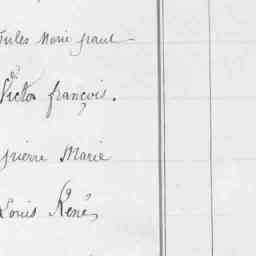 Jules Marie paul
Victor françois.
pierre Marie
Louis René